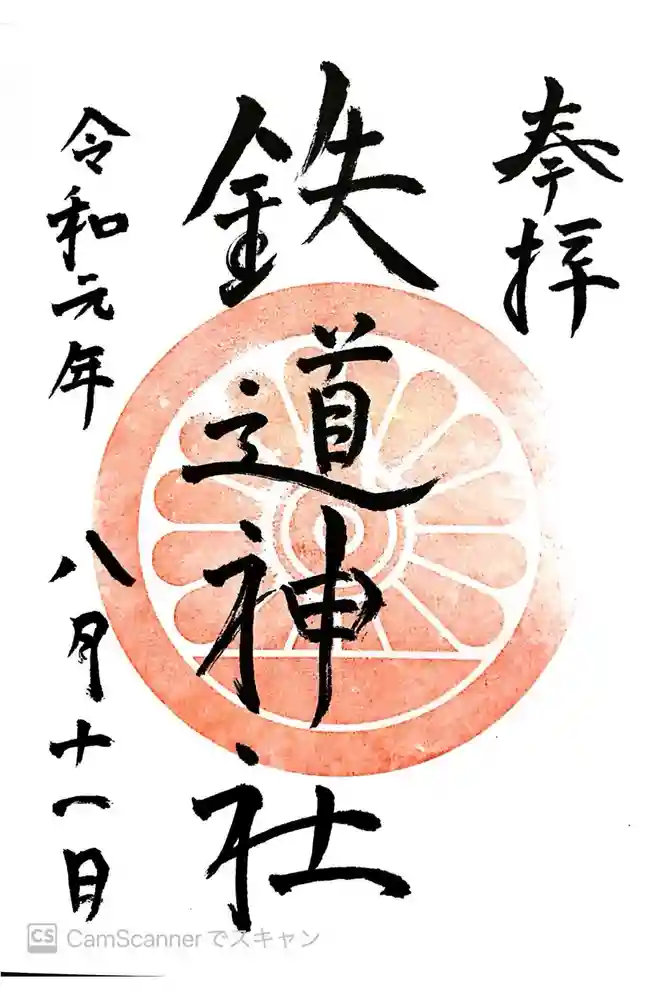 奉拝
鉄道神社
令和元年 八月十一日
CS CamScanner でスキャン